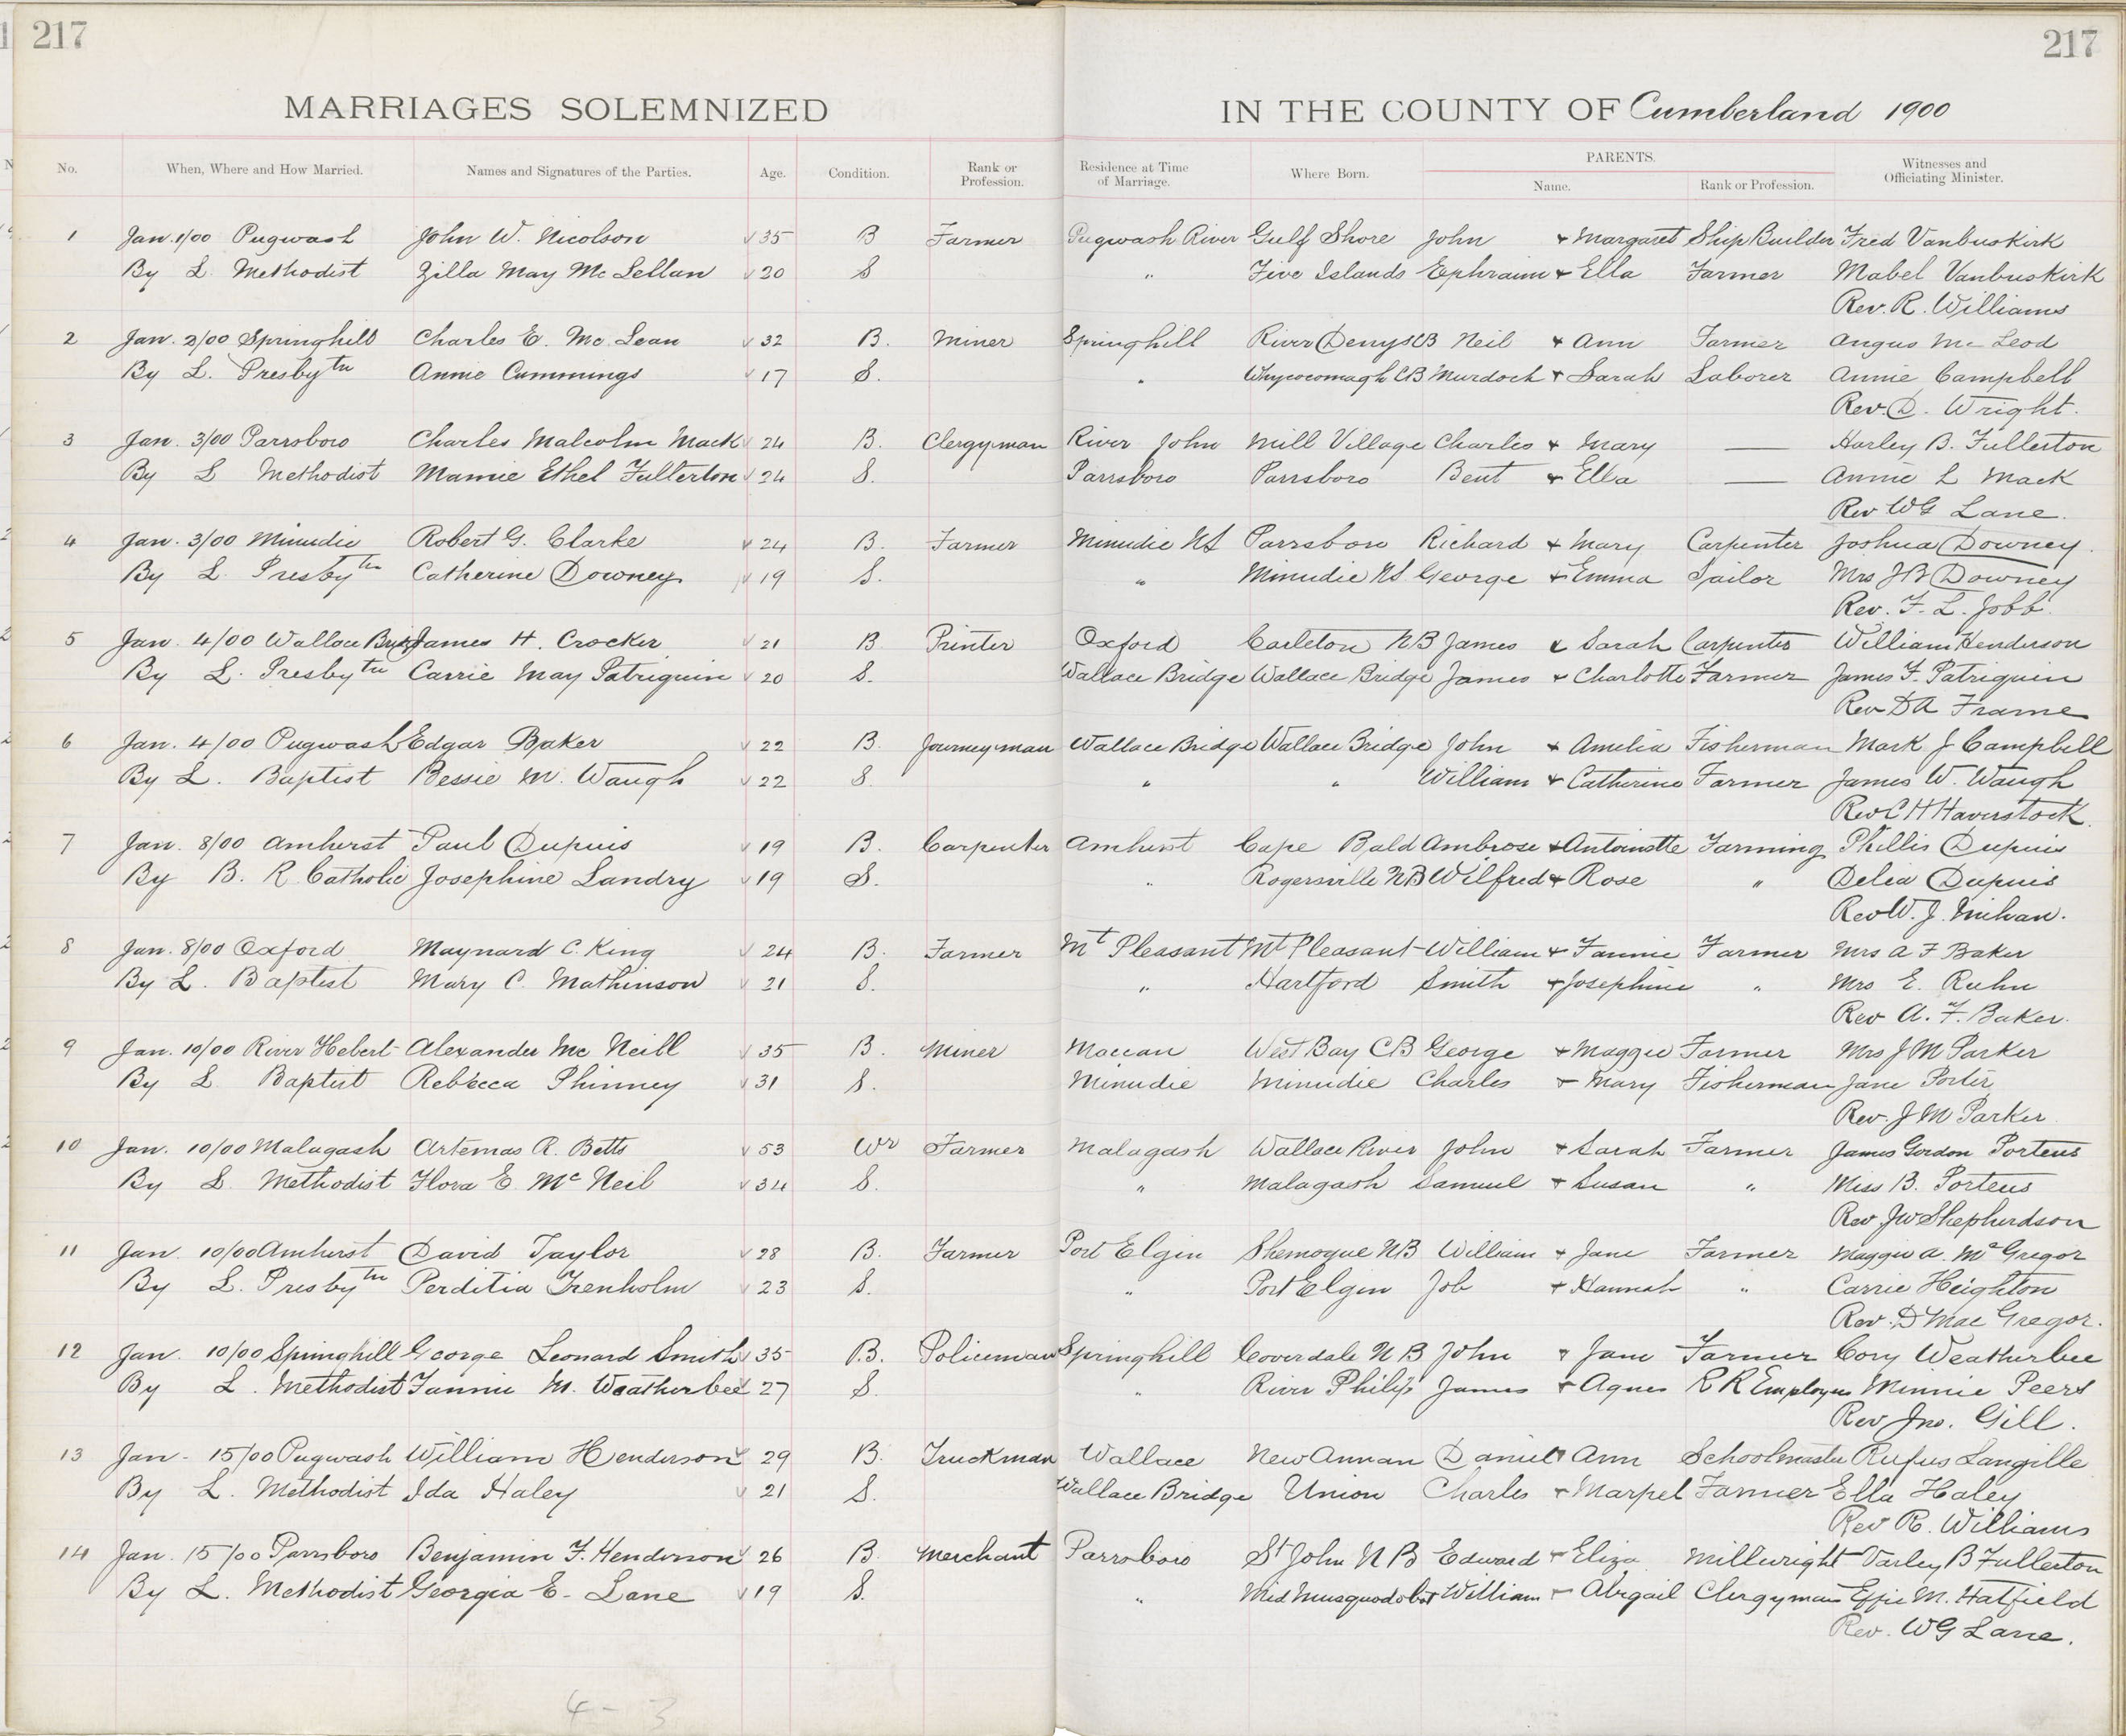 217 217
MARRIAGES SOLEMNIZED IN THE COUNTY OF Cumberland 1900
No. When, Where and How Married. Names and Signatures of the Parties. Age. Condition. Rank or Profession. Residence at Time of Marriage. Where Born. PARENTS. Name. Rank or Profession. Witnesses and Officiating Minister.
1 Jan. 1/00 Pugwash John W. Nicolson 35 B Farmer Pugwash River Gulf Shore John + Margaret Ship Builder Fred Vanbuskirk
By L. Methodist Zilla May McLellan 20 S " Five Islands Ephraim + Ella Farmer Mabel Vanbuskirk
Rev. R. Williams
2 Jan. 2/00 Springhill Charles E. McLean 32 B. Miner Springhill River Denys CB Neil + Ann Farmer Angus McLeod
By L. Presbytn Annie Cummings 17 S. " Whycocomagh CB Murdoch + Sarah Laborer Annie Campbell
Rev. D. Wright.
3 Jan. 3/00 Parrsboro Charles Malcolm Mack 24 B. Clergyman River John Mill Village Charles + Mary — Harley B. Fullerton
By L Methodist Mamie Ethel Fullerton 24 S. Parrsboro Parrsboro Bent + Ella — Annie L Mack
Rev WG Lane.
4 Jan. 3/00 Minudie Robert G. Clarke 24 B. Farmer Minudie NS Parrsboro Richard + Mary Carpenter Joshua Downey.
By L. Presbytn Catherine Downey 19 S. " Minudie NS. George + Emma Tailor Mrs JB Downey
Rev. F. L. Jobb.
5 Jan. 4/00 Wallace Bridge James H. Crocker 21 B Printer Oxford Carleton NB James & Sarah Carpenter William Henderson
By L. Presbytn Carrie May Patriquin 20 S. Wallace Bridge Wallace Bridge James + Charlotte Farmer James F. Patriquin
Rev DA Frame
6 Jan. 4/00 Pugwash Edgar Baker 22 B. Journeyman Wallace Bridge Wallace Bridge John + Amelia Fisherman Mark J Campbell
By L. Baptist Bessie M. Waugh 22 S. " " William + Catherine Farmer James W. Waugh
Rev C H Haverstock.
7 Jan. 8/00 Amherst Paul Dupuis 19 B. Carpenter Amherst Cape Bald Ambrose + Antoinette Farming Phillis Dupuis
By B. R. Catholic Josephine Landry 19 S. " Rogersville NB Wilfred + Rose " Delia Dupuis
Rev W. J. Mihan.
8 Jan. 8/00 Oxford Maynard C. King 24 B. Farmer Mt Pleasant Mt Pleasant William + Fannie Farmer Mrs A F Baker
By L. Baptist Mary C. Mathinson 21 S. " Hartford Smith + Josephine " Mrs E. Ruhn
Rev A. F. Baker.
9 Jan. 10/00 River Hebert Alexander McNeill 35 B. Miner Maccan West Bay CB George + Maggie Farmer Mrs J M Parker
By L Baptist Rebecca Phinney 31 S. Minudie Minudie Charles + Mary Fisherman Jane Porter
Rev. J M Parker.
10 Jan. 10/00 Malagash Artemas R. Betts 53 Wr Farmer Malagash Wallace River John + Sarah Farmer James Gordon Porteus
By L. Methodist Flora E. McNeil 34 S. " Malagash Samuel + Susan " Miss B. Porteus
Rev JW Shepherdson
11 Jan. 10/00 Amherst David Taylor 28 B. Farmer Port Elgin Shemogue NB William + Jane Farmer Maggie A. McGregor
By L. Presbytn Perditia Trenholm 23 S. " Port Elgin Job + Hannah " Carrie Heighton
Rev. D MacGregor.
12 Jan. 10/00 Springhill George Leonard Smith 35 B. Policeman Springhill Coverdale N B John + Jane Farmer Cory Weatherbee
By L. Methodist Fannie M. Weatherbee 27 S. " River Philip James + Agnes R R Employee Minnie Peers
Rev Jno. Gill.
13 Jan - 15/00 Pugwash William Henderson 29 B. Truckman Wallace New Annan Daniel + Ann Schoolmaster Rufus Langille
By L. Methodist Ida Haley 21 S. Wallace Bridge Union Charles + Marpel Farmer Ella Haley
Rev R. Williams
14 Jan. 15/00 Parrsboro Benjamin F. Henderson 26 B Merchant Parrsboro St John N B Edward + Eliza Millwright Varley B Fullerton
By L. Methodist Georgia E. Lane 19 S. " Mid Musquodobit William + Abigail Clergyman Effie M. Hatfield
Rev. WG Lane.
4 - 3